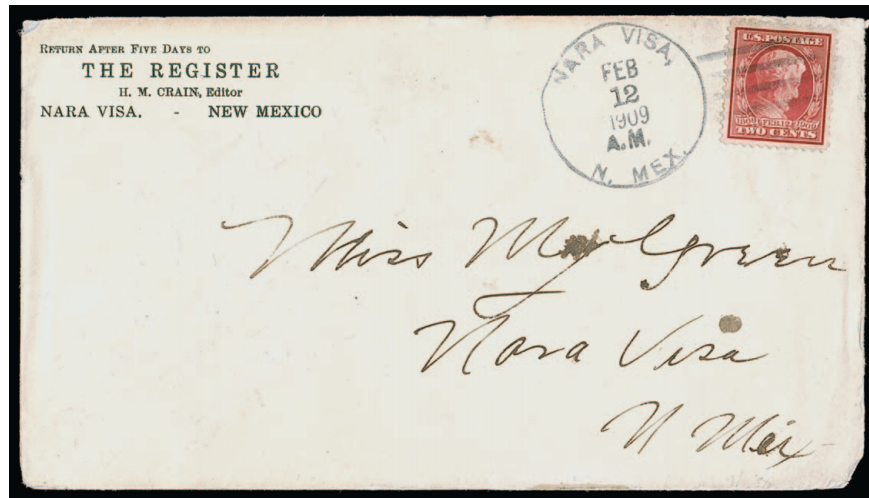 RETURN AFTER FIVE DAYS TO
THE REGISTER
H. M. CRAIN, Editor
NARA VISA. - NEW MEXICO
NARA VISA,
FEB
12
1909
A.M.
N. MEX.
U.S. POSTAGE
1809 FEB. 12 1909
TWO CENTS
Miss Green
Nara Visa
N Mex